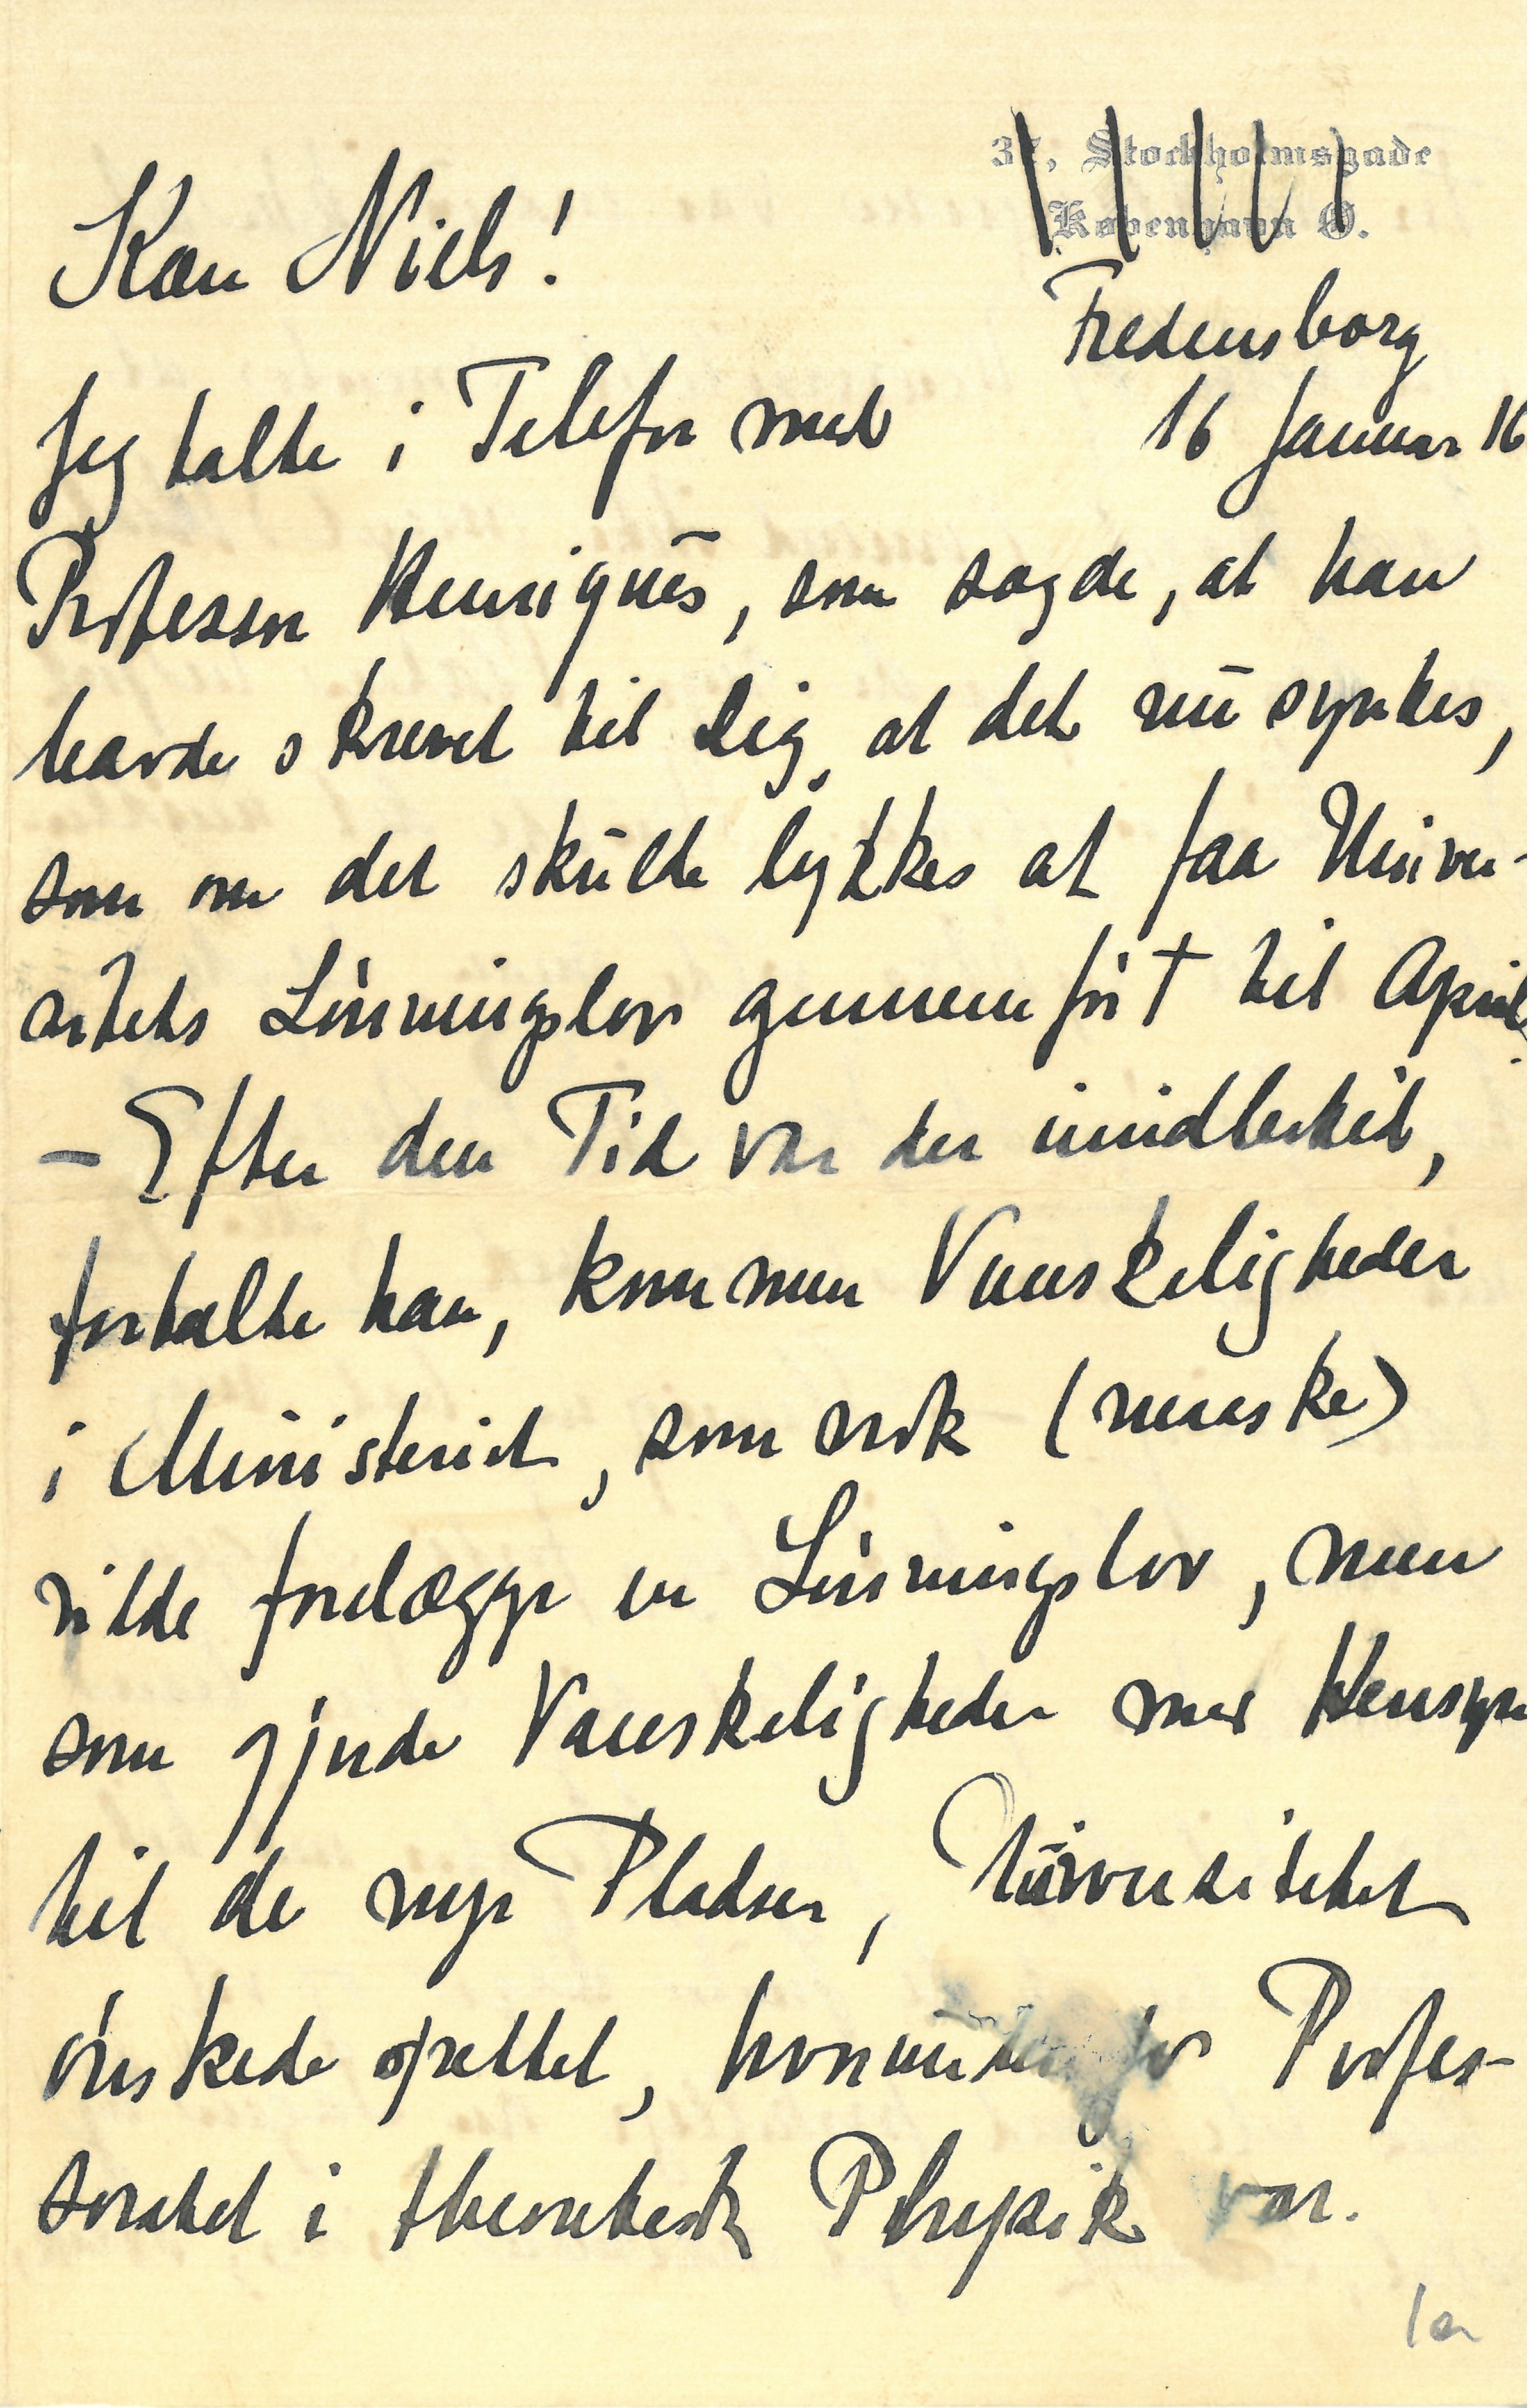 37, Stockholmsgade
København Ø.
Fredensborg
16 Januar 16
Kære Niels!
Jeg talte i Telefon med
Professor Henriques, som sagde, at han
havde skrevet til Dig, at det nu syntes,
som om det skulde lykkes at faa Univer-
sitets Lønningslov gennemført til April.
– Efter den Tid var der imidlertid,
fortalte han, kommen Vanskeligheder
i Ministeriet, som nok (maaske)
vilde forelægge en Lønningslov, men
som gjorde Vanskeligheder med Hensyn
til de nye Pladser, Universitetet
ønskede oprettet, hvorunder jo Profes-
soratet i theoretisk Physik var.
1a